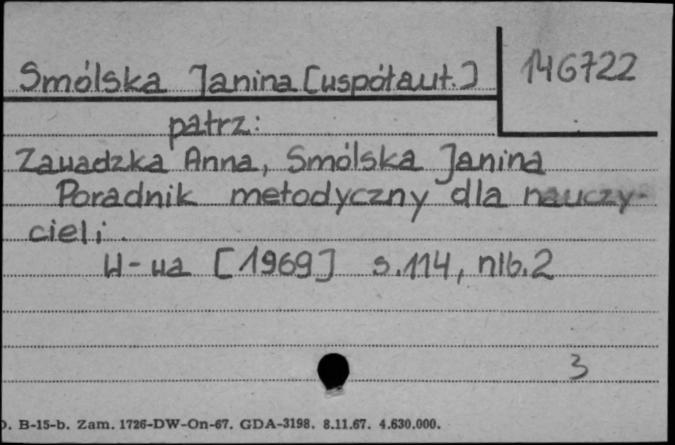 Smólska Janina [współaut.] 146722
patrz:
Zawadzka Anna, Smólska Janina
Poradnik metodyczny dla nauczy-
cieli.
W-wa [1969] s.114, nlb.2
3
. B-15-b. Zam. 1726-DW-On-67. GDA-3198. 8.11.67. 4.630.000.